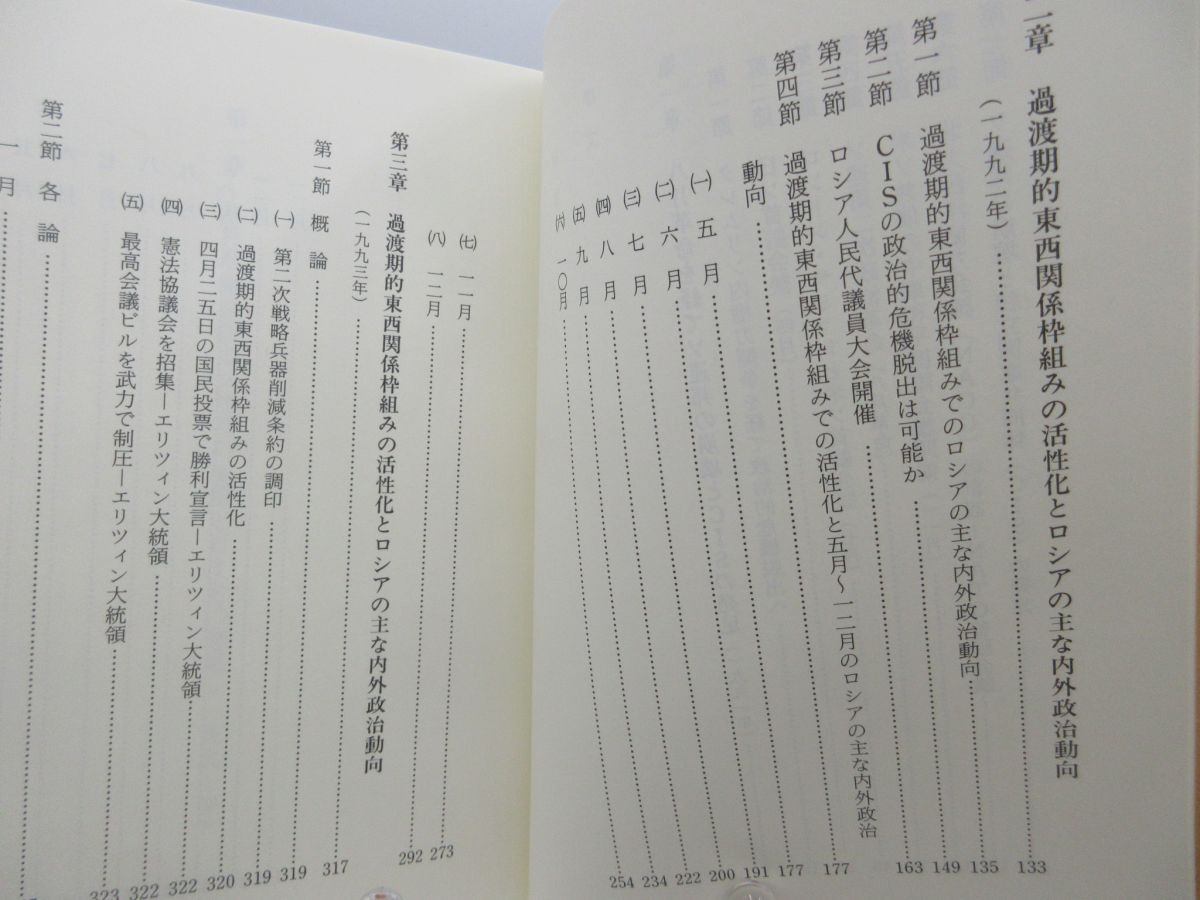 二章 過渡期的東西関係枠組みの活性化とロシアの主な内外政治動向
(一九九二年)……………133
第一節 過渡期的東西関係枠組みでのロシアの主な内外政治動向……………135
第二節 CISの政治的危機脱出は可能か……………149
第三節 ロシア人民代議員大会開催……………163
第四節 過渡期的東西関係枠組みでの活性化と五月~一二月のロシアの主な内外政治
動向……………177
㈠ 五月……………177
㈡ 六月……………191
㈢ 七月……………200
㈣ 八月……………222
㈤ 九月……………234
㈥ 一〇月……………254
㈦ 一一月……………273
㈧ 一二月……………292
第三章 過渡期的東西関係枠組みの活性化とロシアの主な内外政治動向
(一九九三年)……………317
第一節 概論……………319
㈠ 第二次戦略兵器削減条約の調印……………319
㈡ 過渡期的東西関係枠組みの活性化……………320
㈢ 四月二五日の国民投票で勝利宣言―エリツィン大統領……………322
㈣ 憲法協議会を招集―エリツィン大統領……………322
㈤ 最高会議ビルを武力で制圧―エリツィン大統領……………323
第二節 各論……………
一月……………